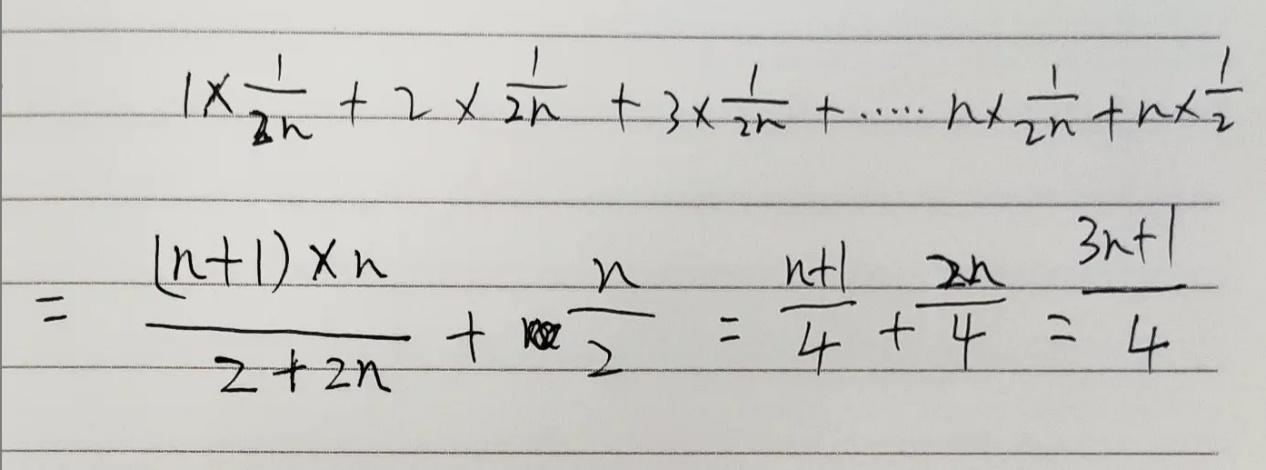 1×1/2n + 2×1/2n + 3×1/2n + ...... n×1/2n + n×1/2
= (n+1)×n/2+2n + n/2 = n+1/4 + 2n/4 = 3n+1/4